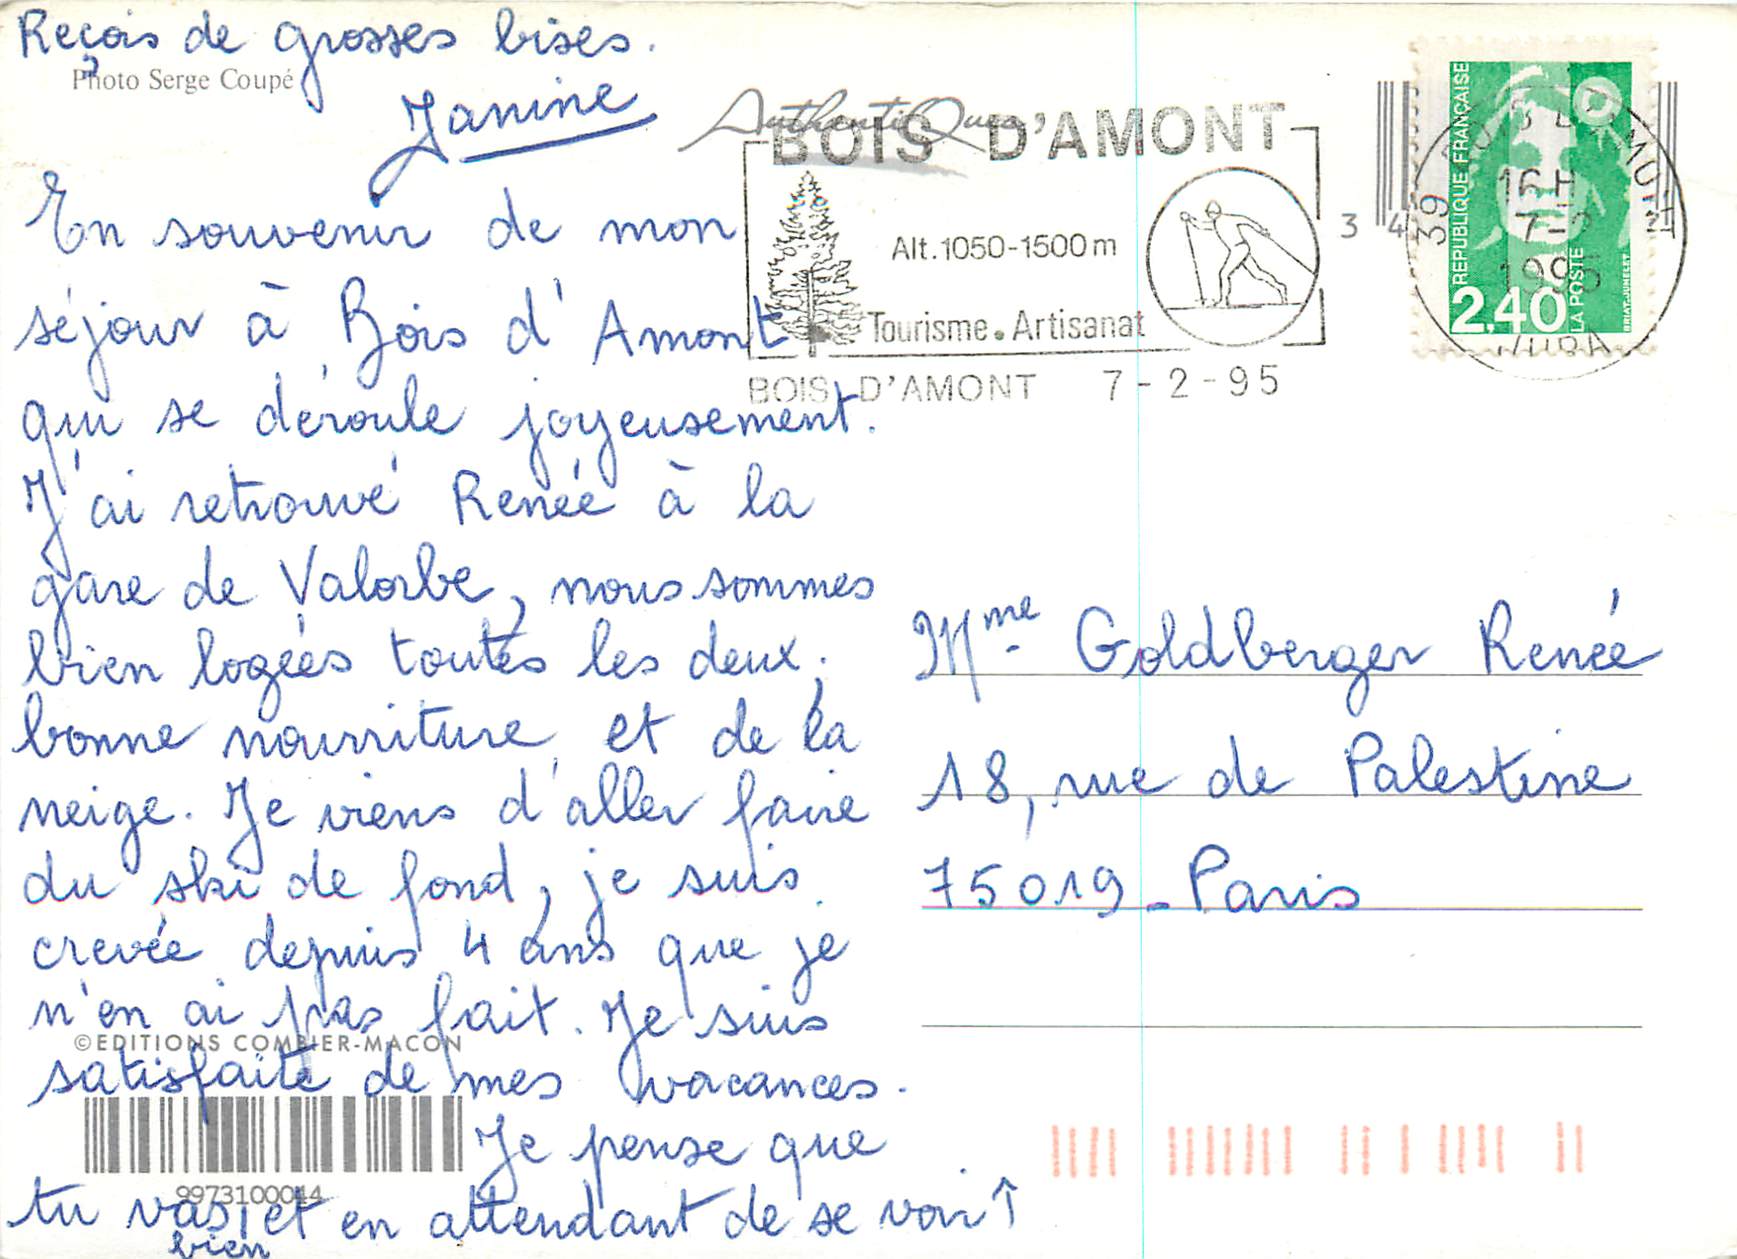 Reçois de grosses bises.
Photo Serge Coupé
Janine
En souvenir de mon
séjour à Bois d'Amont
qui se déroule joyeusement.
J'ai retrouvé Renée à la
gare de Valorbe, nous sommes
bien logées toutes les deux,
bonne nourriture et de la
neige. Je viens d'aller faire
du ski de fond, je suis
crevée depuis 4 ans que je
n'en ai pas fait. Je suis
©EDITIONS COMBIER-MACON
satisfaite de mes vacances.
Je pense que
9973100044
tu vas, et en attendant de se voir ↑
bien
AuthentiQues
BOIS D'AMONT
Alt.1050-1500m
Tourisme.Artisanat
BOIS D'AMONT 7-2-95
3 4
39
16H
7-2
1995
JURA
REPUBLIQUE FRANÇAISE
2,40
LA POSTE
BRIAT-JUMELET
Mme Goldberger Renée
18, rue de Palestine
75019 - Paris